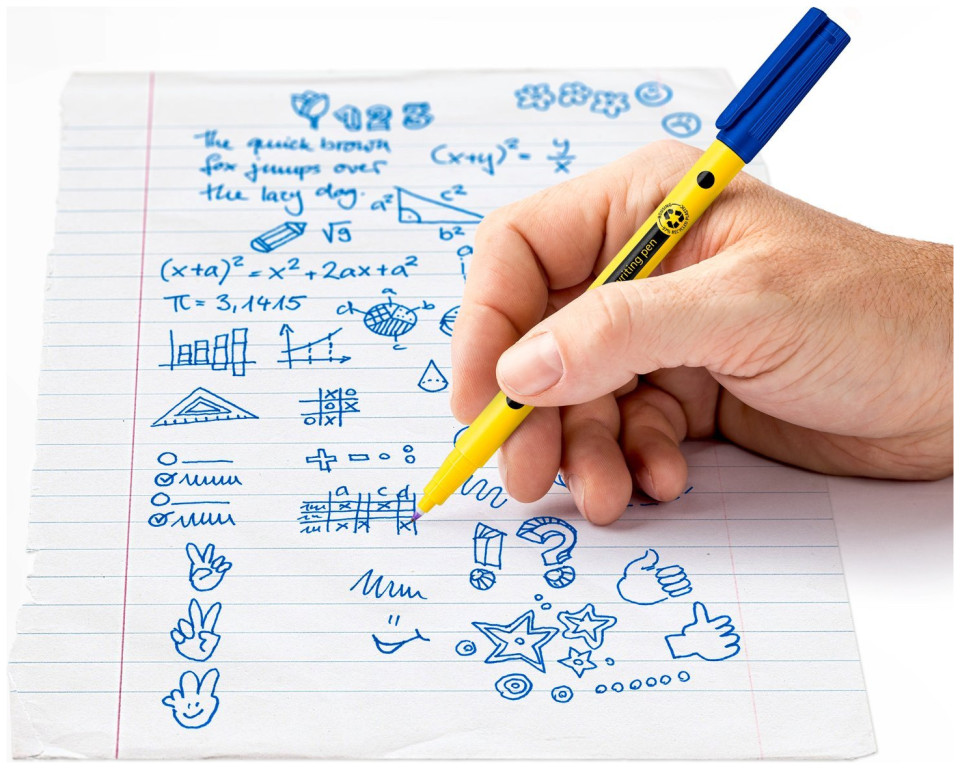 1 2 3
the quick brown
fox jumps over
the lazy dog.
(x+y)² = y/x
a² c²
b²
√9
(x+a)² = x² + 2ax + a²
π = 3,1415
a
b
c
d
a
x o
o x
o x
+ -
a c d
x x
x x x
! ?
writing pen